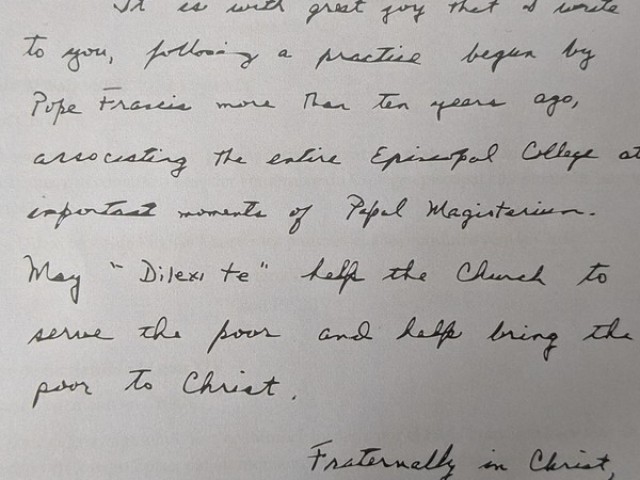 It is with great joy that I write
to you, following a practice begun by
Pope Francis more than ten years ago,
associating the entire Episcopal College at
important moments of Papal Magisterium.
May "Dilexi te" help the Church to
serve the poor and help bring the
poor to Christ.
Fraternally in Christ,